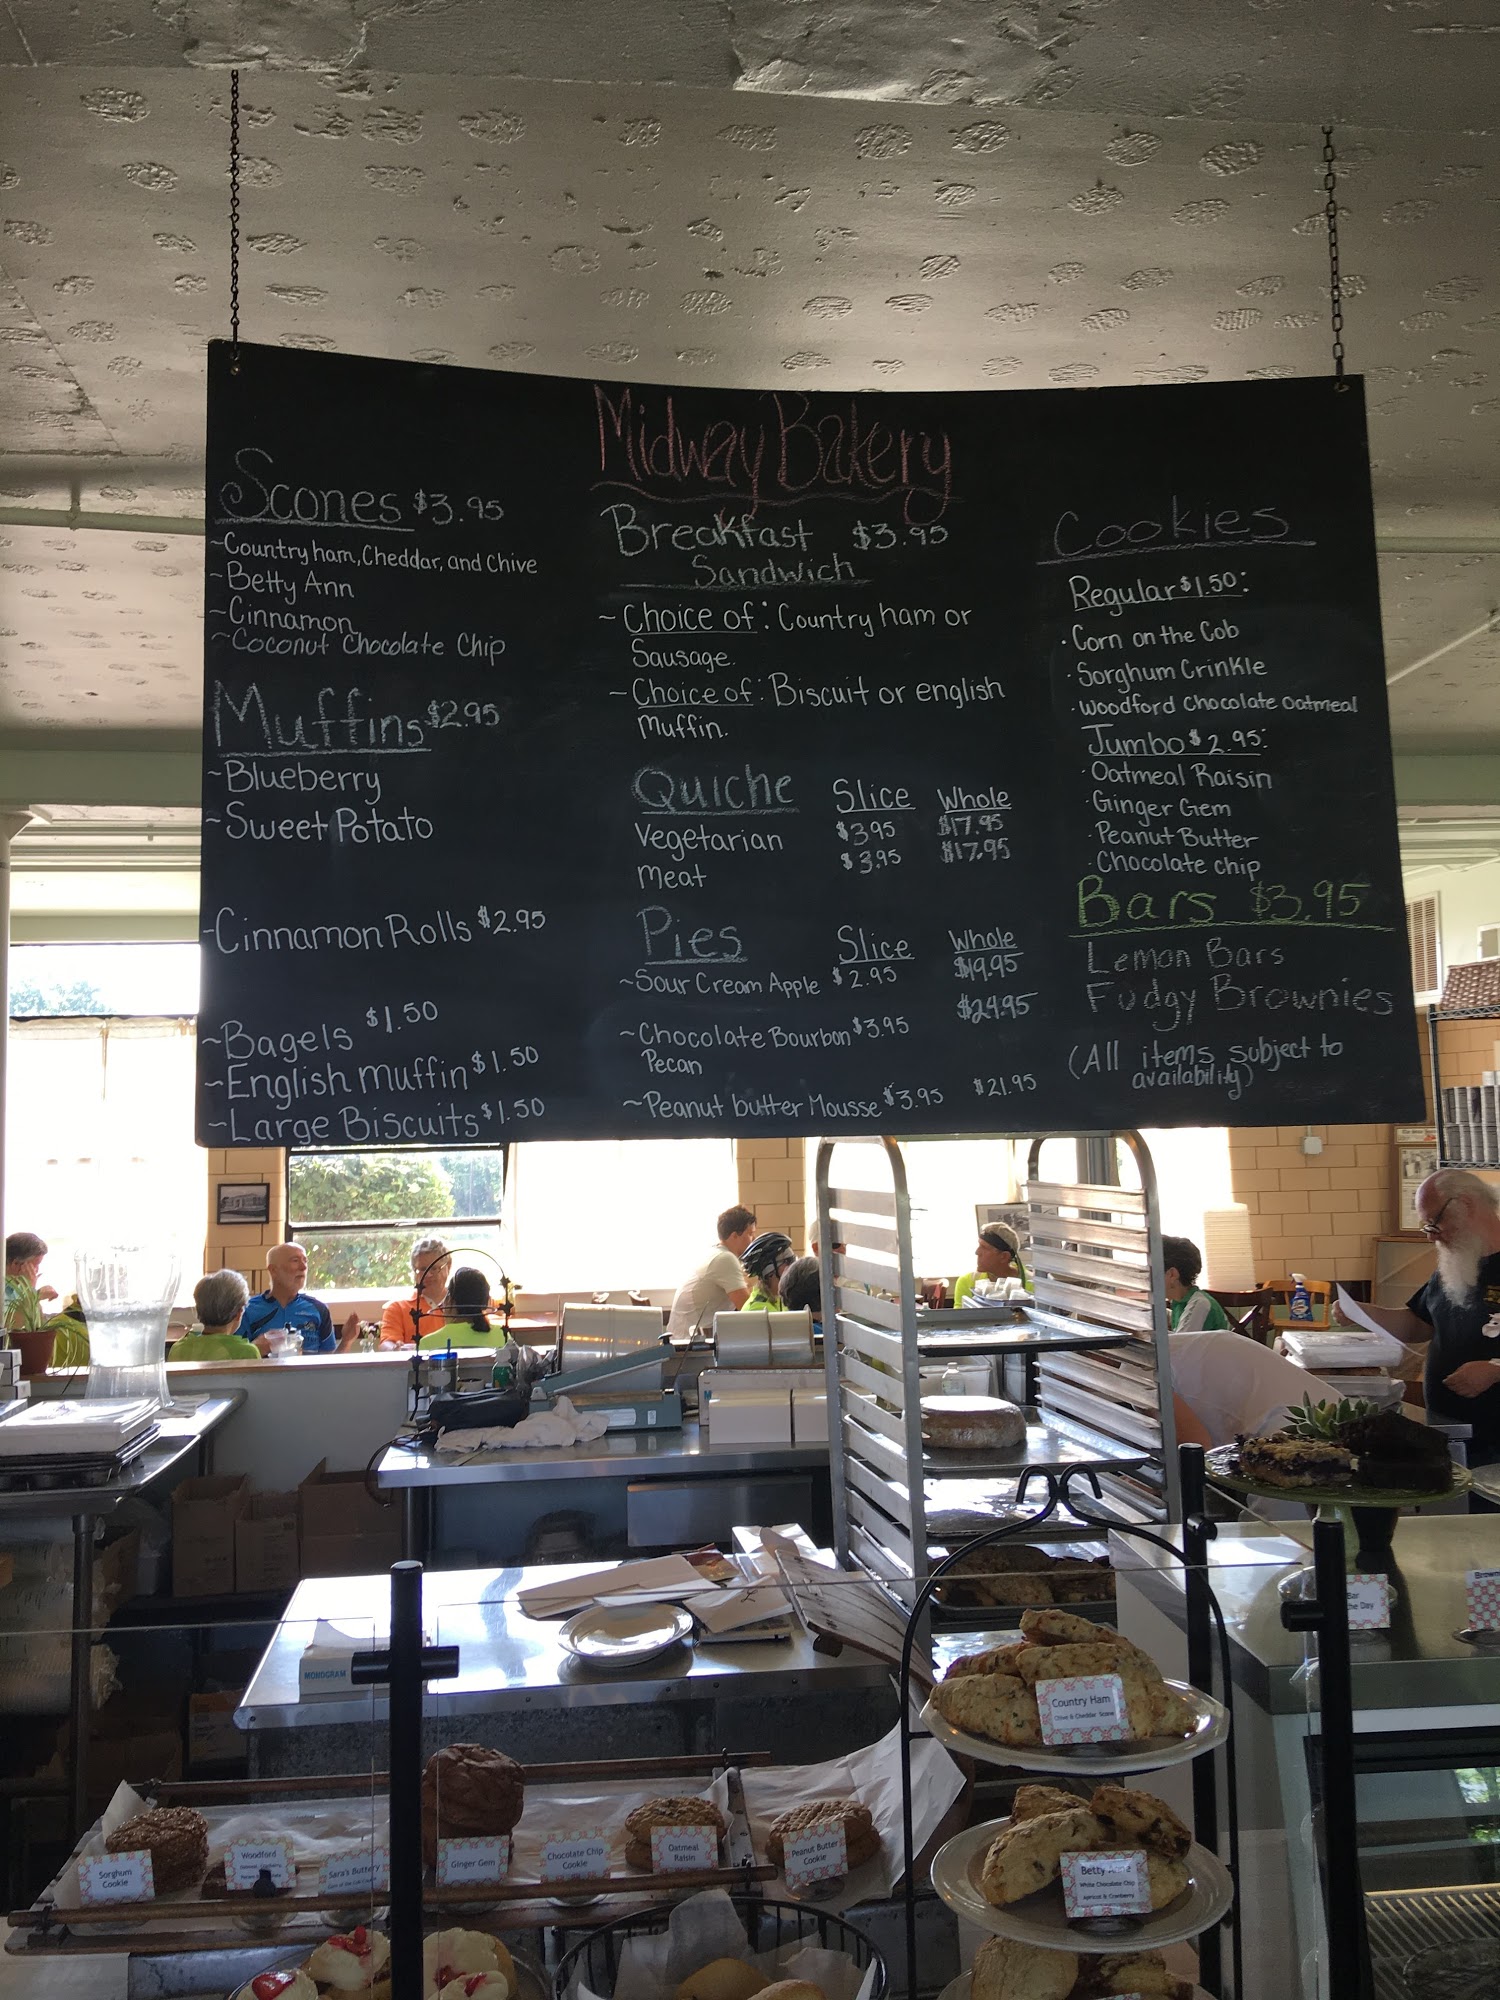 Midway Bakery
Scones $3.95
~Country ham, Cheddar, and Chive
~Betty Ann
~Cinnamon
~Coconut Chocolate Chip
Muffins $2.95
~Blueberry
~Sweet Potato
~Cinnamon Rolls $2.95
~Bagels $1.50
~English muffin $1.50
~Large Biscuits $1.50
Breakfast $3.95
Sandwich
~ Choice of: Country ham or
Sausage.
~ Choice of: Biscuit or english
muffin.
Quiche Slice Whole
Vegetarian $3.95 $17.95
meat $3.95 $17.95
Pies Slice Whole
~Sour Cream Apple $2.95 $19.95
~Chocolate Bourbon $3.95 $24.95
Pecan
~Peanut butter Mousse $3.95 $21.95
Cookies
Regular $1.50:
· Corn on the Cob
· Sorghum Crinkle
· Woodford Chocolate Oatmeal
Jumbo $2.95:
· Oatmeal Raisin
· Ginger Gem
· Peanut Butter
· Chocolate chip
Bars $3.95
Lemon Bars
Fudgy Brownies
(All items subject to
availability)
MONOGRAM
Country Ham
Chive & Cheddar Scone
Betty
White Chocolate Chip
Apricot & Cranberry
Sorghum
Cookie
Woodford
Sara's Buttery
Ginger Gem
Chocolate Chip
Cookie
Oatmeal
Raisin
Peanut Butter
Cookie
Bar
the Day